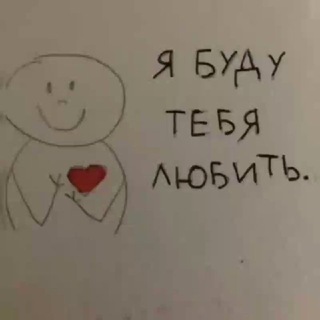 Я БУДУ
ТЕБЯ
ЛЮБИТЬ.